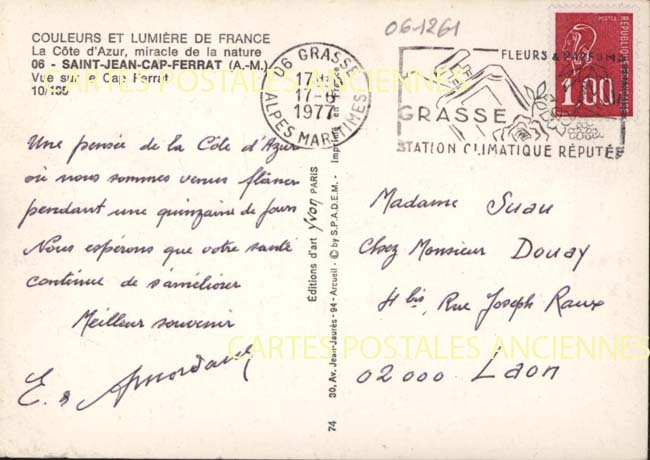 COULEURS ET LUMIÈRE DE FRANCE
La Côte d'Azur, miracle de la nature
06 - SAINT-JEAN-CAP-FERRAT (A.-M.)
Vue sur le Cap Ferrat
10/188
061261
06 GRASSE
17-6
1977
ALPES MARITIMES
FLEURS & PARFUMS
GRASSE
STATION CLIMATIQUE RÉPUTÉE
RÉPUBLIQUE FRANÇAISE
1,00
CARTES POSTALES ANCIENNES
Une pensée de la Côte d'Azur
où nous sommes venus flâner
pendant une quinzaine de jours
Nous espérons que votre santé
continue de s'améliorer
Meilleur souvenir
Editions d'art Yvon PARIS
30, Av. Jean-Jaurès - 94 - Arcueil - © by S.P.A.D.E.M. -
74
Madame Suau
Chez Monsieur Douay
4 bis, Rue Joseph Raux
02000 Laon
CARTES POSTALES ANCIENNES